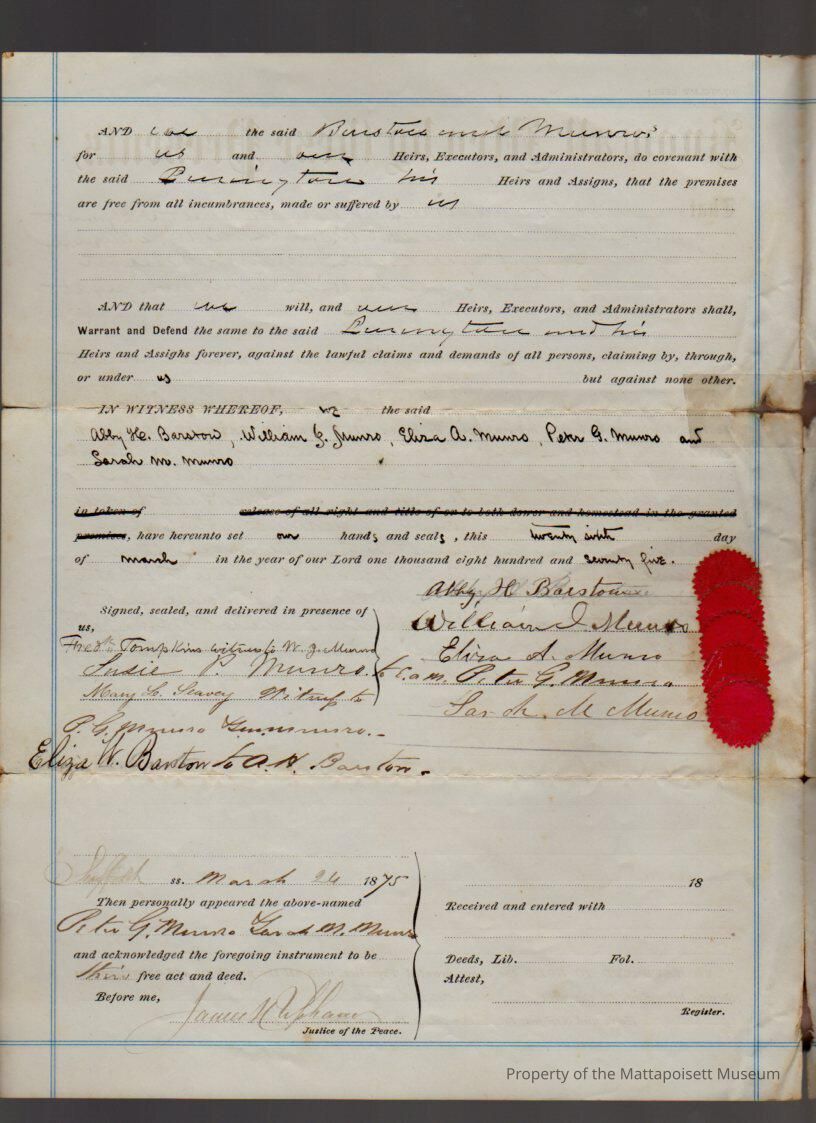 AND we the said Barstow and Munros
for us and our Heirs, Executors, and Administrators, do covenant with
the said Purrington his Heirs and Assigns, that the premises
are free from all incumbrances, made or suffered by us
AND that we will, and our Heirs, Executors, and Administrators shall,
Warrant and Defend the same to the said Purrington and his
Heirs and Assighs forever, against the lawful claims and demands of all persons, claiming by, through,
or under us but against none other.
IN WITNESS WHEREOF, we the said
Abby H. Barstow, William J. Munro, Eliza A. Munro, Peter G. Munro and
Sarah M. Munro
in token of release of all right and title of or to both dower and homestead in the granted
premises, have hereunto set our hands and seals, this twenty sixth day
of march in the year of our Lord one thousand eight hundred and seventy five.
Abby H Barstow
Signed, sealed, and delivered in presence of
William J. Munro
us,
Fred Tompkins witness to W. J. Munro
Eliza A. Munro
Susie P. Munro to E. A. M.
Peter G. Munro
Mary L. Seavey Witness to
Sarah M Munro
P. G. Munro
Eliza W. Barstow to A. H. Barstow.
Suffolk ss. March 24 1875
18
Then personally appeared the above-named
Received and entered with
Peter G. Munro Sarah M. Munro
and acknowledged the foregoing instrument to be
Deeds, Lib. Fol.
their free act and deed.
Attest,
Before me,
James H Upham
Register.
Justice of the Peace.
Property of the Mattapoisett Museum